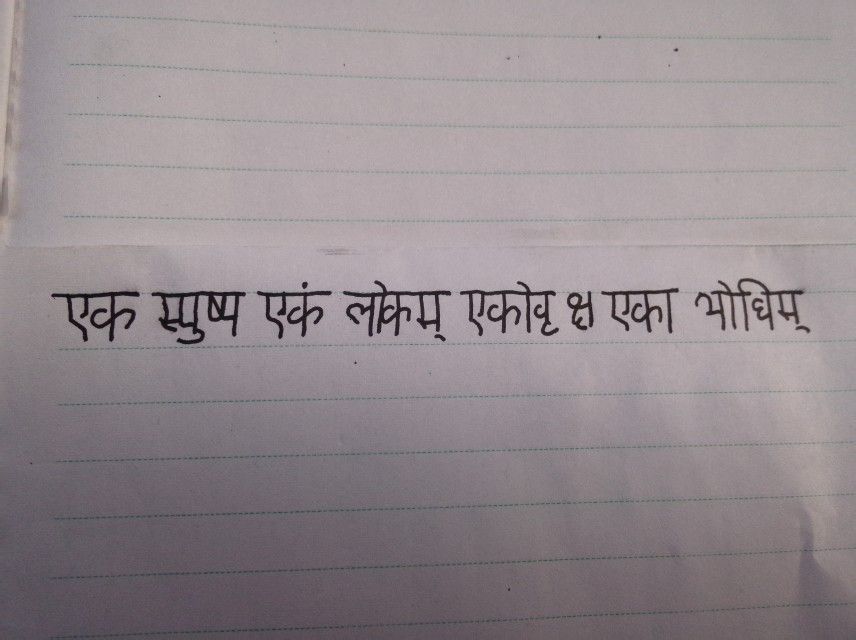 एक स्पुष्प एकं लोकम् एकोवृ क्ष एका भोधिम्